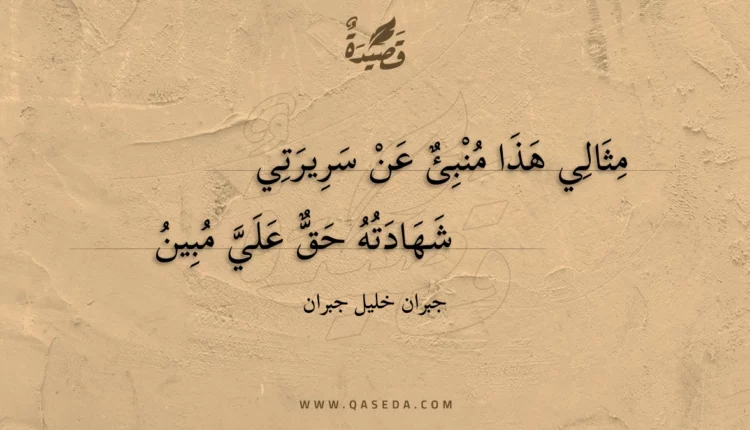 قَصِيدَةٌ
مِثَالِي هَذَا مُنْبِئٌ عَنْ سَرِيرَتِي
شَهَادَتُهُ حَقٌّ عَلَيَّ مُبِينُ
جبران خليل جبران
WWW.QASEDA.COM